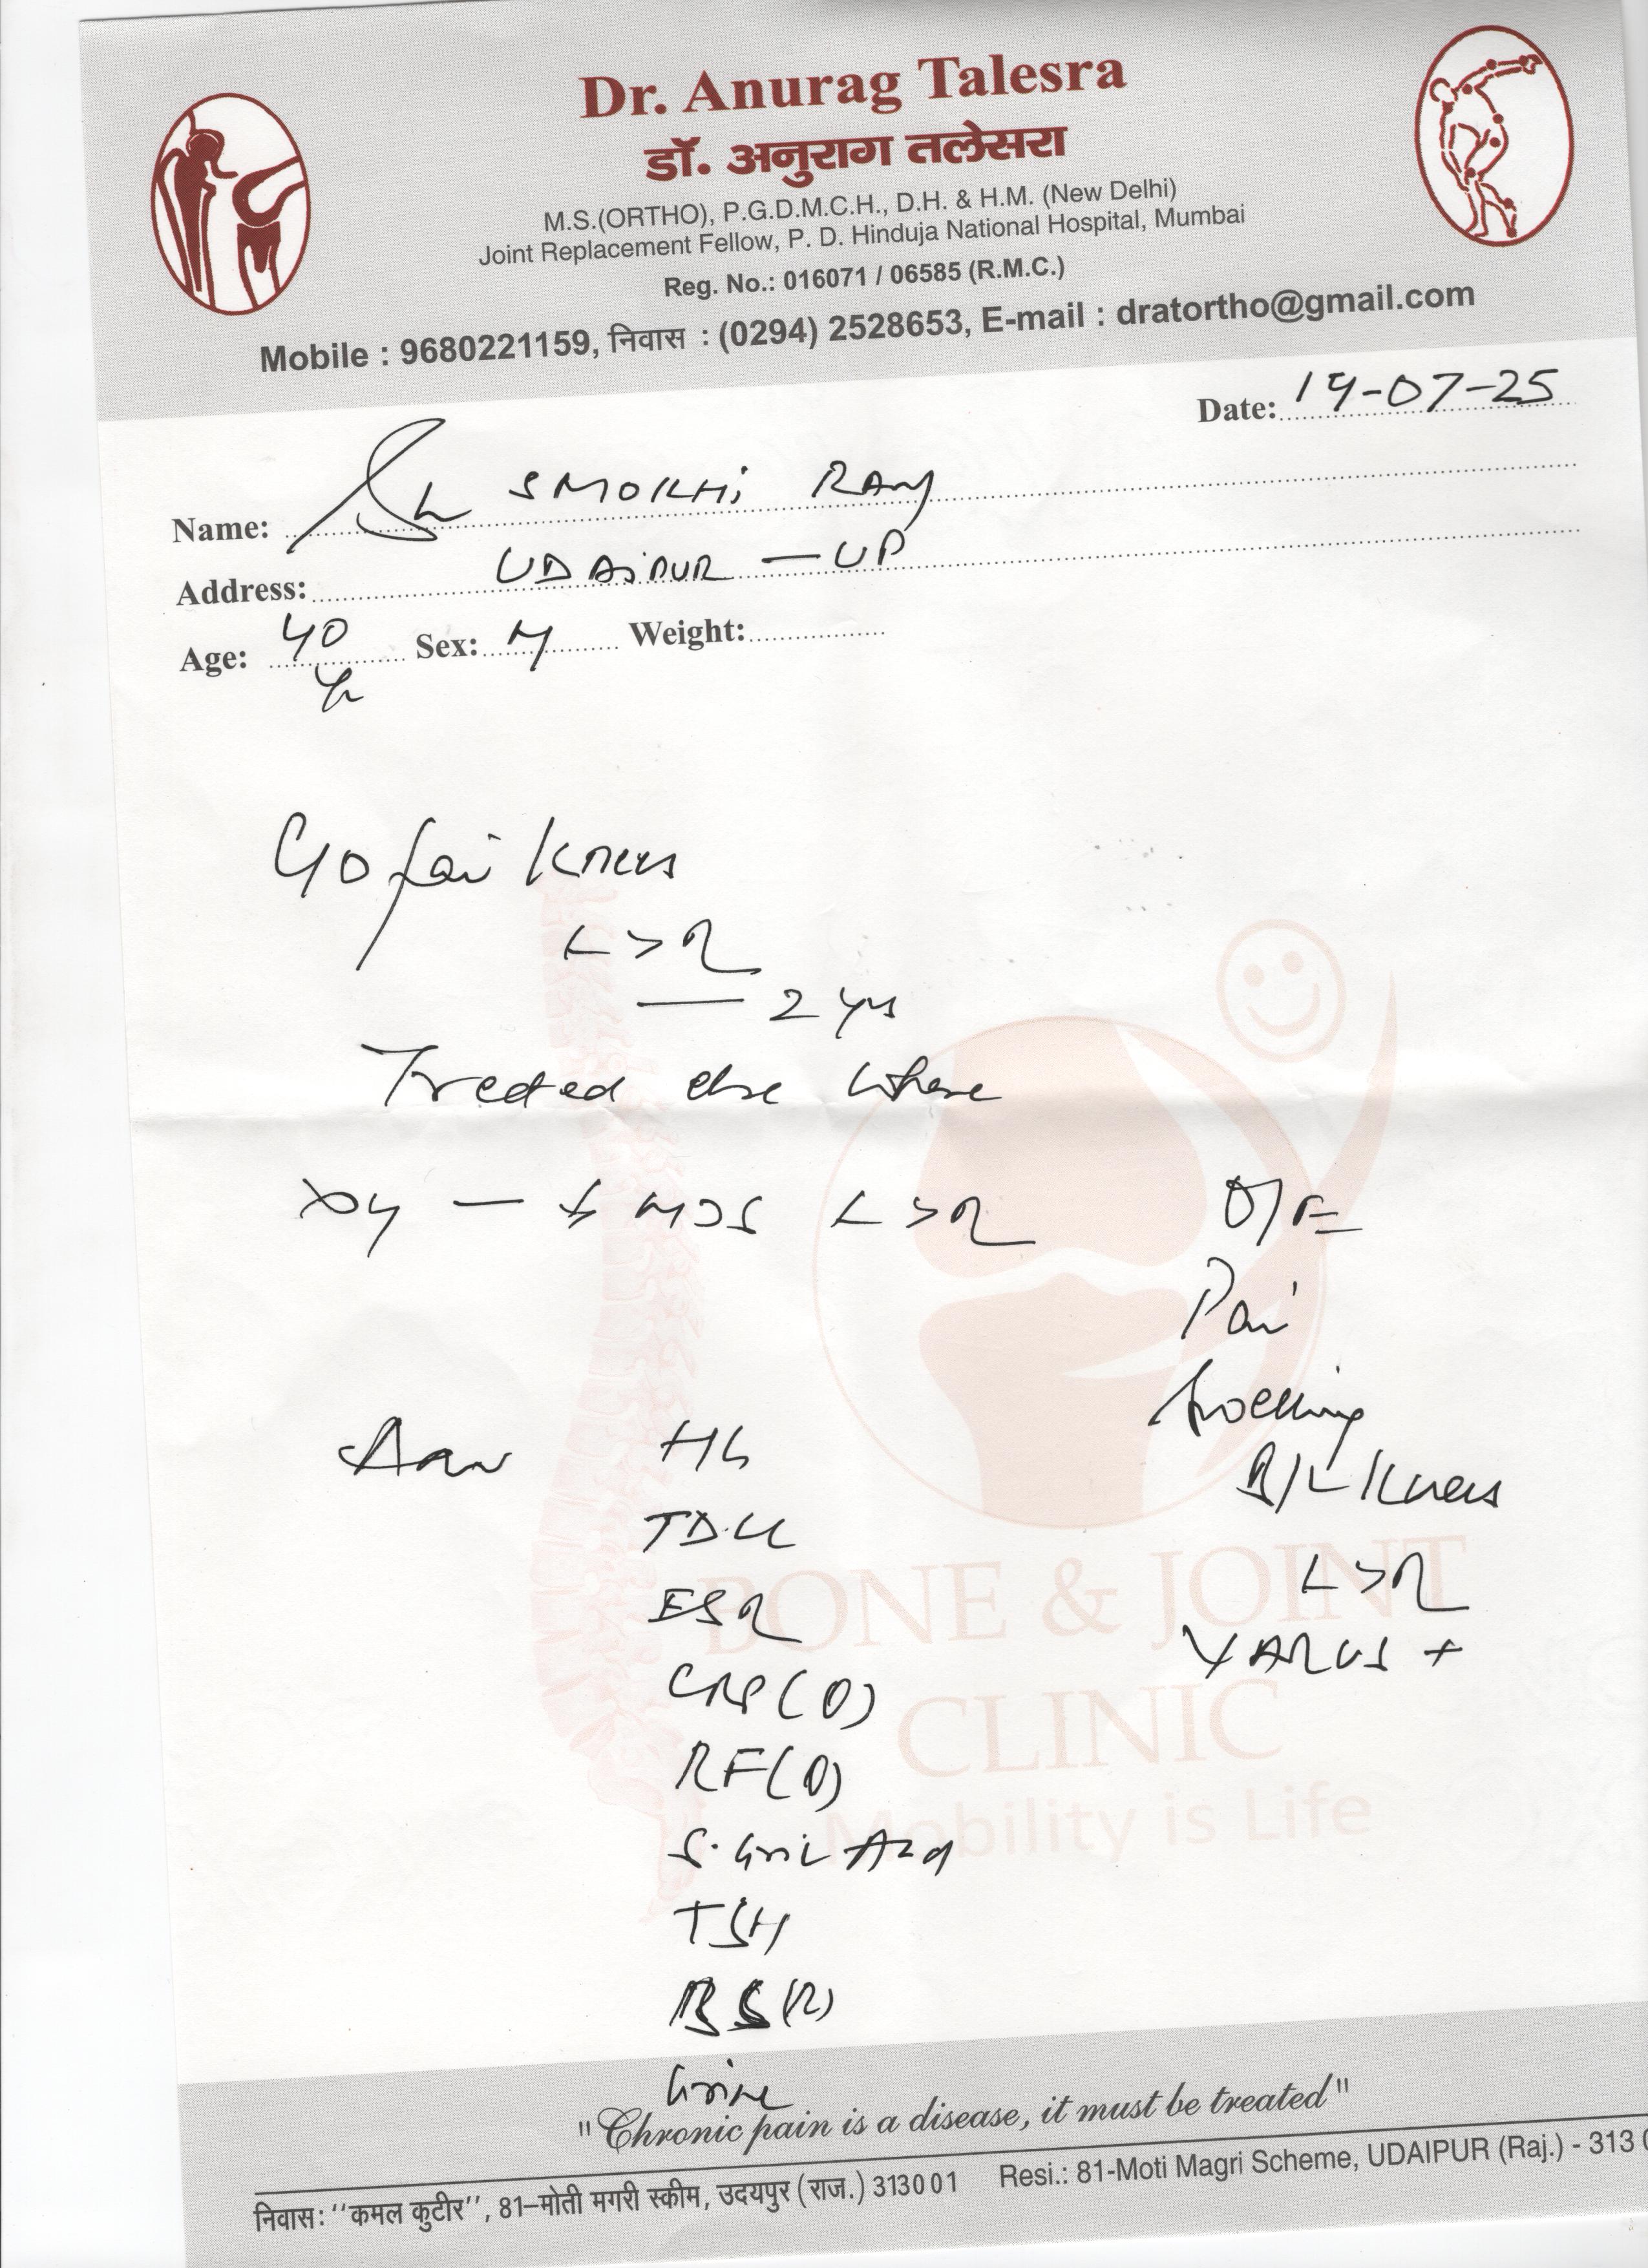 Dr. Anurag Talesra
डॉ. अनुराग तलेसरा
M.S.(ORTHO), P.G.D.M.C.H., D.H. & H.M. (New Delhi)
Joint Replacement Fellow, P. D. Hinduja National Hospital, Mumbai
Reg. No.: 016071 / 06585 (R.M.C.)
Mobile : 9680221159, निवास : (0294) 2528653, E-mail : dratortho@gmail.com
Date: 19-07-25
Name: SMOKHi RAM
Address: UDAiPUR – UP
Age: 40 Yr Sex: M Weight:
C/o Pain Knees
L > R
— 2 yrs
Treated else where
L > R
O/E
Pain
Swelling
B/L Knees
L > R
VARUS +
Adv
Hb
TDLC
ESR
CRP(Q)
RF(Q)
S. Uric Acid
TSH
BS(R)
Urine
BONE & JOINT
CLINIC
Mobility is Life
"Chronic pain is a disease, it must be treated"
निवास: ''कमल कुटीर'', 81–मोती मगरी स्कीम, उदयपुर (राज.) 313001 Resi.: 81-Moti Magri Scheme, UDAIPUR (Raj.) - 313